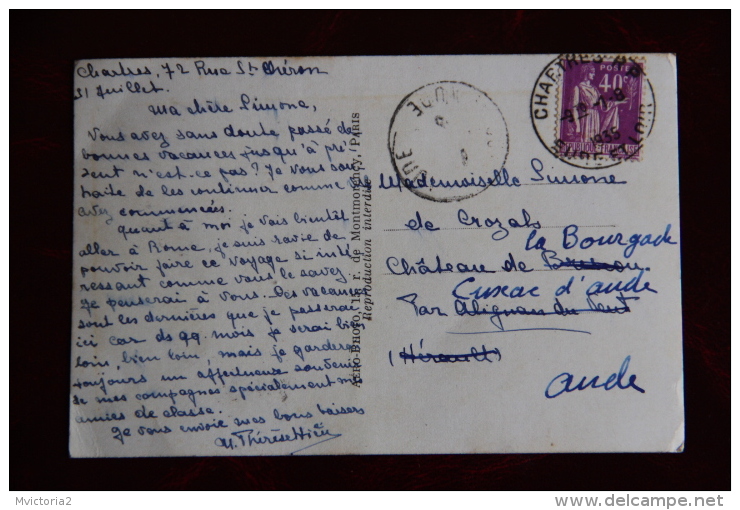 Chartres, 72 Rue St Chéron
31 Juillet.
Ma chère Simone,
Vous avez sans doute passé de
bonnes vacances jusqu'à pré-
sent n'est-ce pas? Je vous sou-
haite de les continuer comme
avez commencées.
Quant à moi je vais bientôt
aller à Rome, je suis ravie de
pouvoir faire ce voyage si inté-
ressant comme vous le savez.
Je penserai à vous. Ces vacances
sont les dernières que je passerai
ici car ds qq. mois je serai bien
loin, bien loin, mais je garderai
toujours un affectueux souvenir
de mes compagnes spécialement mes
amies de classe.
Je vous envoie mes bons baisers
M. Thérèse
AÉRO-PHOTO, 13, r. de Montmorency, PARIS
Reproduction interdite
POSTES
40c
CHARTRES
1935
AUDE
Mademoiselle Simone
de Crozals
la Bourgade
Château de
Cuxac d'aude
Par Alignan du Vent
(Hérault)
Aude
Mvictoria2
www.delcampe.net